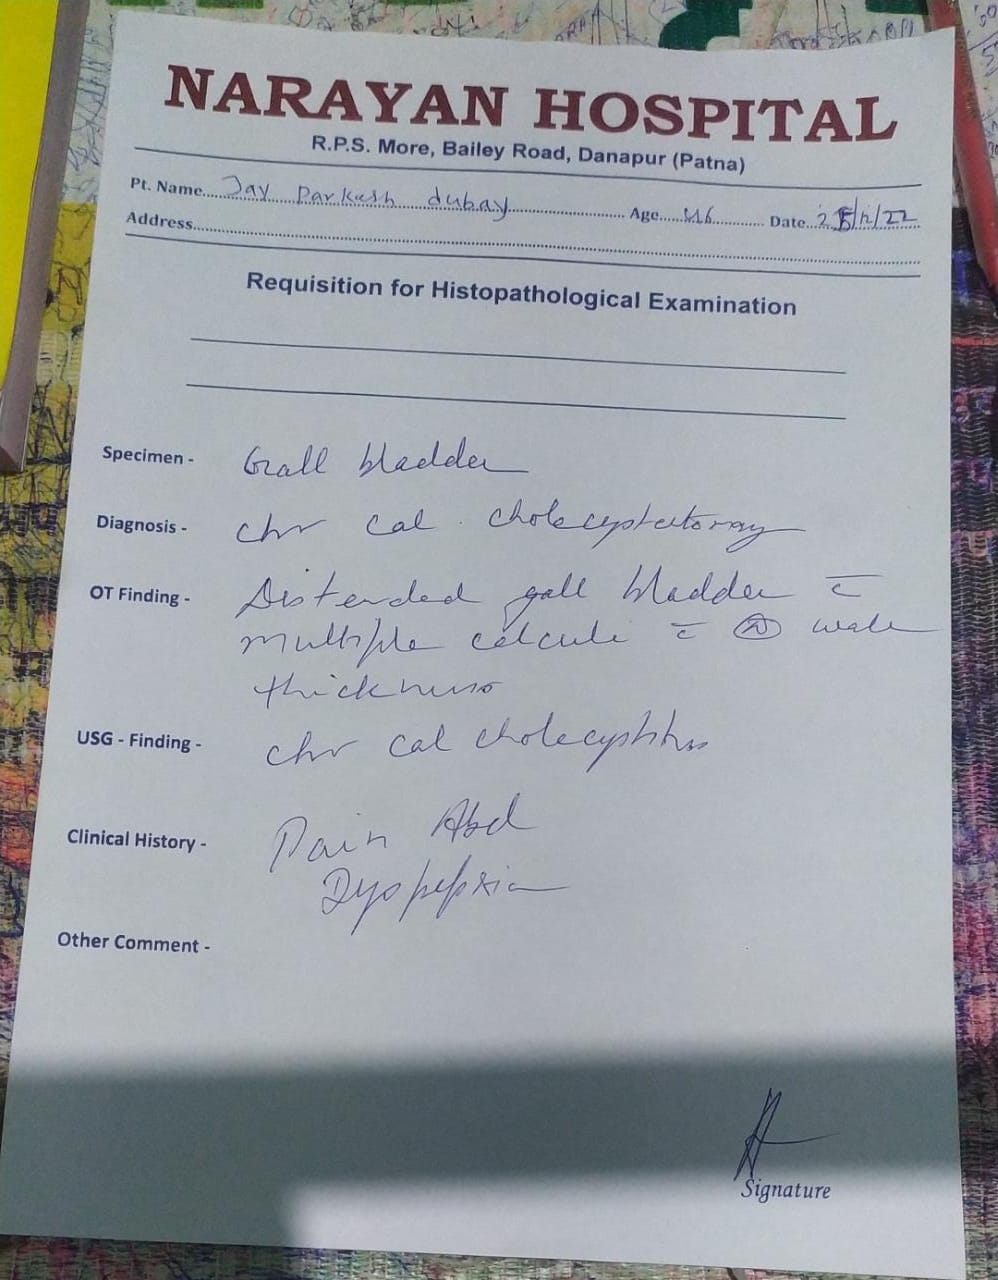 NARAYAN HOSPITAL
R.P.S. More, Bailey Road, Danapur (Patna)
Pt. Name Jay Parkash dubay Age Date 25/12/22
Address
Requisition for Histopathological Examination
Specimen - Gall bladder
Diagnosis - chr cal. cholecystectomy
OT Finding - Distended gall bladder c̄
multiple calculi c̄ wall
thickness
USG - Finding - chr cal cholecystitis
Clinical History - Pain Abd
Dyspepsia
Other Comment -
Signature